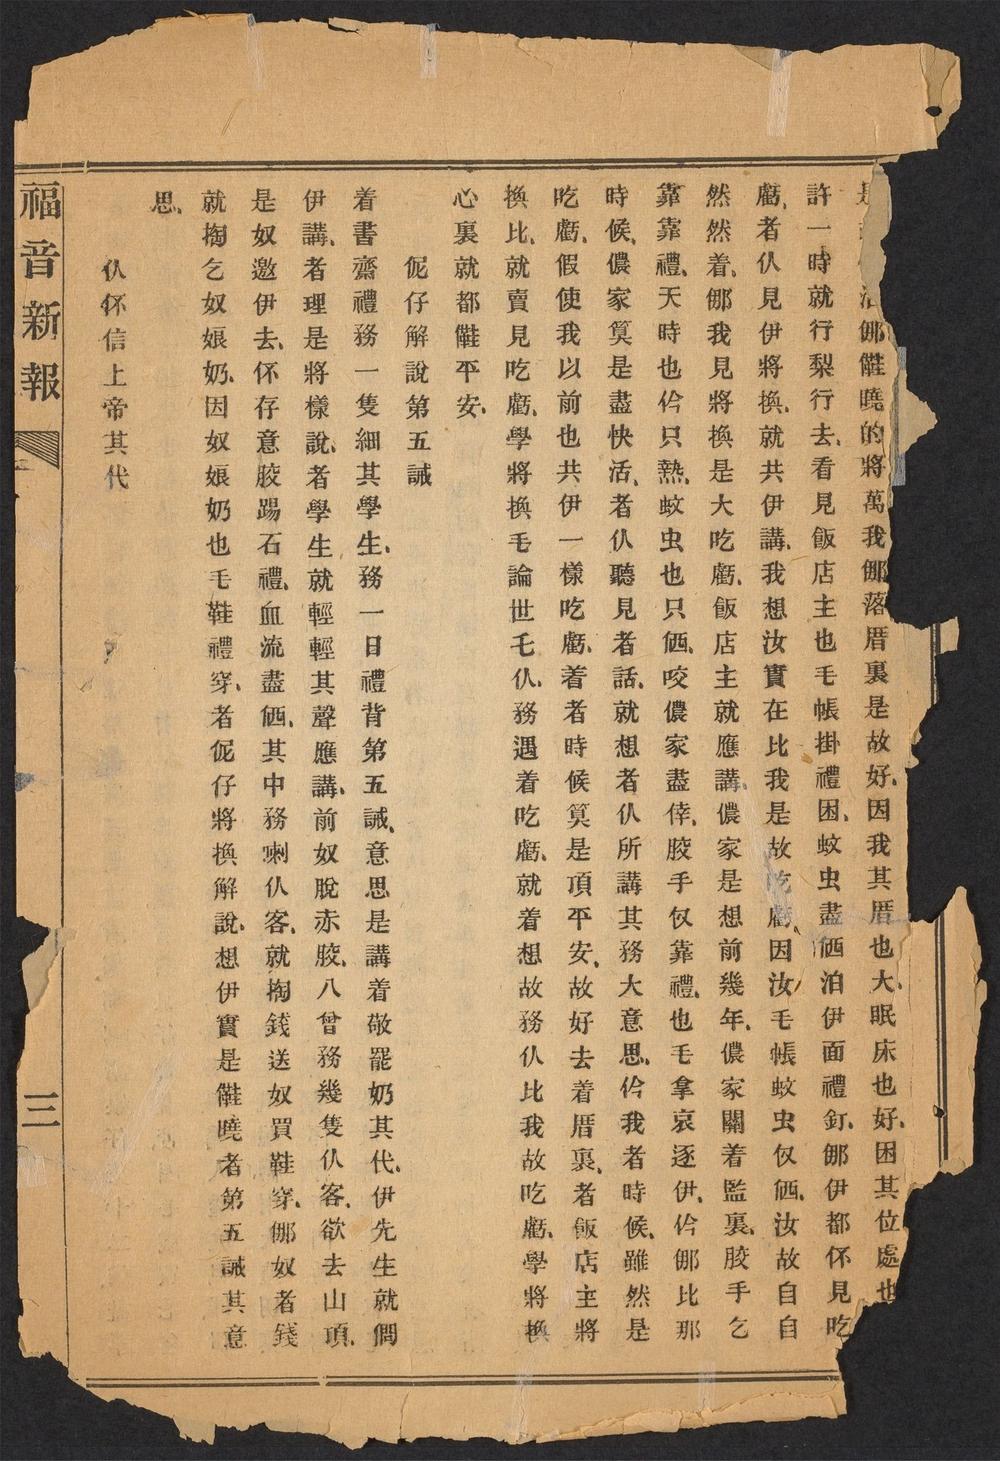 鄔䧫曉的將萬我鄔落厝裏是故好、因我其厝也大、眠床也好、困其位處也
許一時就行梨行去、看見飯店主也毛帳掛禮困、蚊虫盡㐁泊伊面禮釘、鄔伊都伓見吃
虧、者仈見伊將換、就共伊講、我想汝實在比我是故吃虧、因汝毛帳蚊虫仅㐁、汝故自自
然然着、鄔我見將換是大吃虧、飯店主就應講、儂家是想前幾年、儂家關着監裏、骹手乞
靠靠禮、天時也伶只熱、蚊虫也只㐁、咬儂家盡倖、骹手仅靠禮、也毛拿哀逐伊、伶鄔比那
時候、儂家筭是盡快活、者仈聽見者話、就想者仈所講其務大意思、伶我者時候、雖然是
吃虧、假使我以前也共伊一樣吃虧、着者時候筭是頂平安、故好去着厝裏、者飯店主將
換比、就賣見吃虧、學將換毛論世乇仈、務遇着吃虧、就着想故務仈比我故吃虧、學將換
心裏就都䧫平安、
伲仔解說第五誡
着書齋禮務一隻細其學生、務一日禮背第五誡、意思是講着敬罷奶其代、伊先生就僩
伊講、者理是將樣說、者學生就輕輕其聲應講、前奴脫赤骹、八曾務幾隻仈客、欲去山頂、
是奴邀伊去、伓存意骹踢石禮、血流盡㐁、其中務喇仈客、就掏錢送奴買鞋穿、鄔奴者錢
就掏乞奴娘奶、因奴娘奶也毛鞋禮穿、者伲仔將換解說、想伊實是䧫曉者第五誡其意
思、
仈伓信上帝其代
福音新報
三